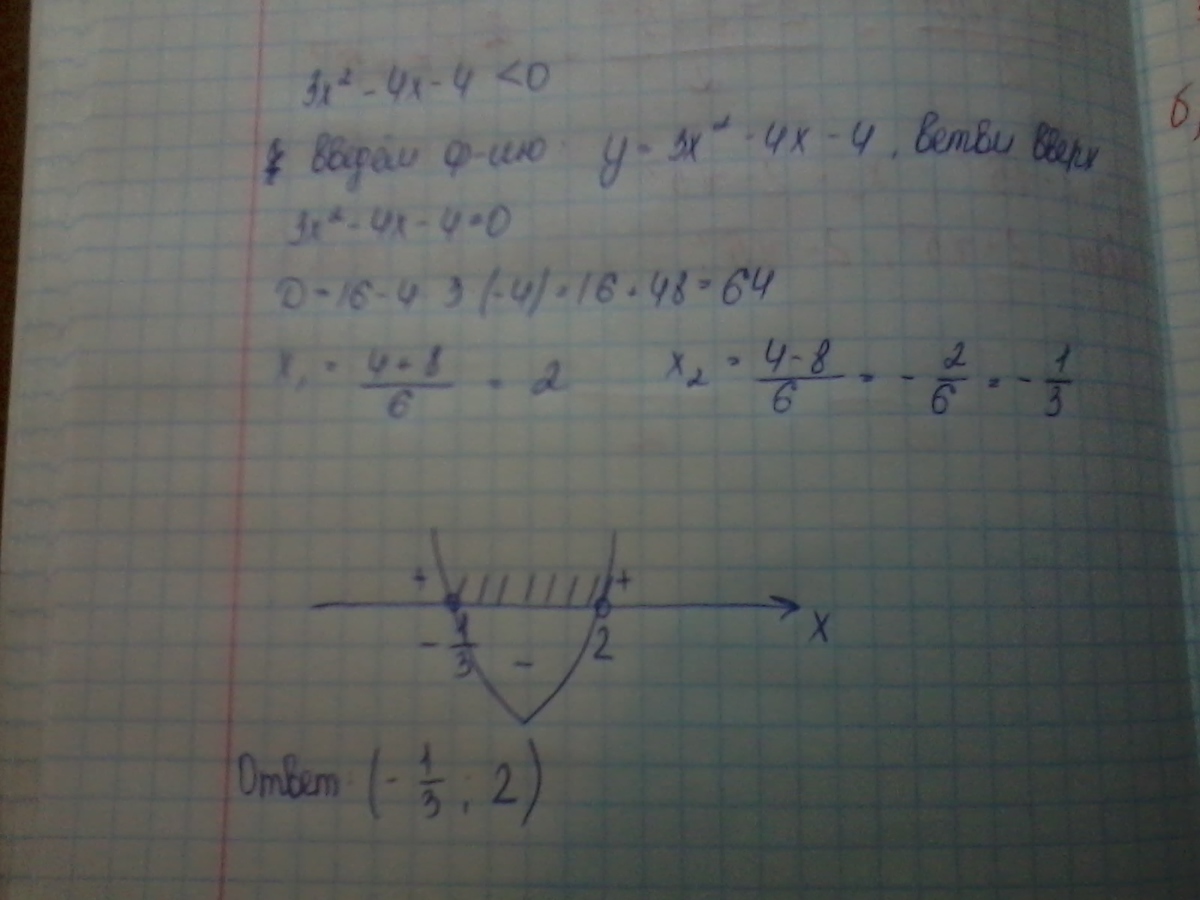 3x² - 4x - 4 < 0
Введём ф-цию: y = 3x² - 4x - 4, ветви вверх
3x² - 4x - 4 = 0
D = 16 - 4 · 3 (-4) = 16 + 48 = 64
x₁ = (4+8)/6 = 2    x₂ = (4-8)/6 = -2/6 = -1/3
+ +
-1/3 - 2 x
Ответ: (-1/3; 2)
б)